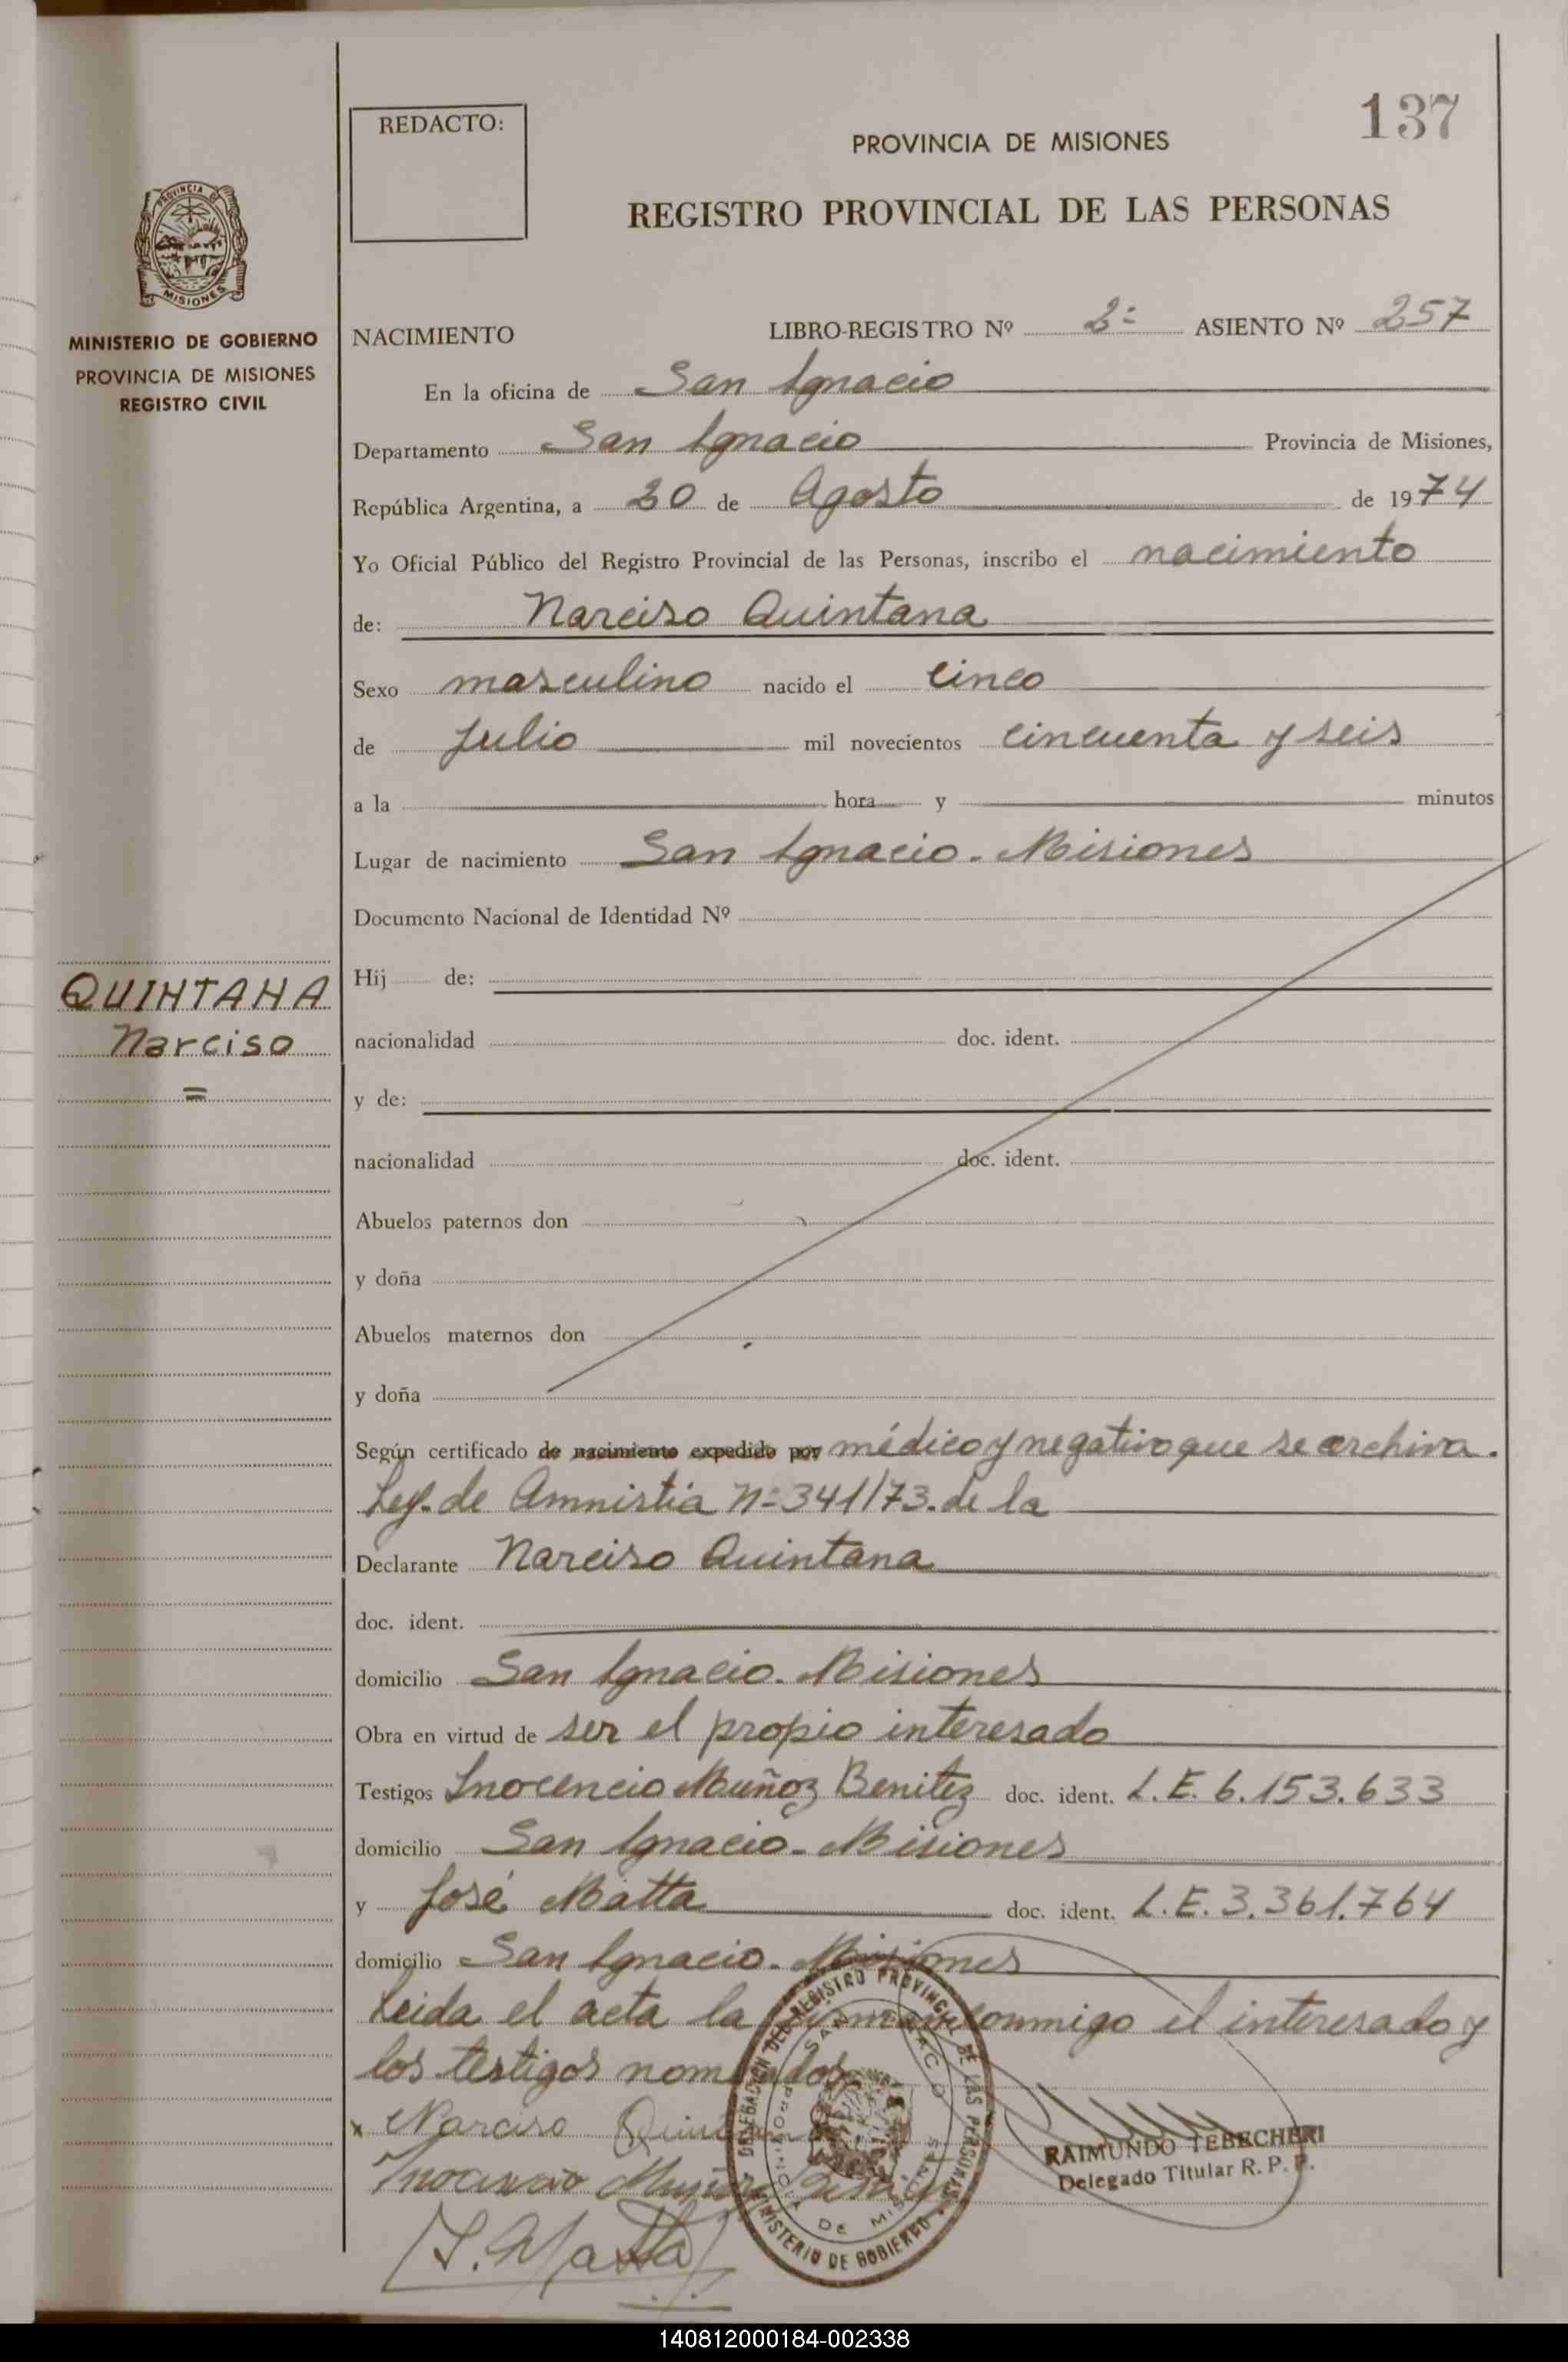 137
REDACTO:
PROVINCIA DE MISIONES
REGISTRO PROVINCIAL DE LAS PERSONAS
PROVINCIA DE
MISIONES
MINISTERIO DE GOBIERNO
PROVINCIA DE MISIONES
REGISTRO CIVIL
NACIMIENTO LIBRO-REGISTRO Nº 2º ASIENTO Nº 257
En la oficina de San Ignacio
Departamento San Ignacio Provincia de Misiones,
República Argentina, a 20 de Agosto de 1974
Yo Oficial Público del Registro Provincial de las Personas, inscribo el nacimiento
de: Narciso Quintana
Sexo masculino nacido el cinco
de Julio mil novecientos cincuenta y seis
a la hora y minutos
Lugar de nacimiento San Ignacio - Misiones
Documento Nacional de Identidad Nº
QUINTANA
Narciso
=
Hij de:
nacionalidad doc. ident.
y de:
nacionalidad doc. ident.
Abuelos paternos don
y doña
Abuelos maternos don
y doña
Según certificado de nacimiento expedido por médico y negativo que se archiva.
Ley de Amnistia Nº 341/73. de la
Declarante Narciso Quintana
doc. ident.
domicilio San Ignacio - Misiones
Obra en virtud de ser el propio interesado
Testigos Inocencio Muñoz Benitez doc. ident. L.E. 6.153.633
domicilio San Ignacio - Misiones
y José Matta doc. ident. L.E. 3.361.764
domicilio San Ignacio - Misiones
Leida el acta la firman conmigo el interesado y
los testigos nombrados
x Narciso Quintana
Inocencio Muñoz Benitez
J. Matta
DELEGACION DEL REGISTRO PROVINCIAL DE LAS PERSONAS
MINISTERIO DE GOBIERNO
PROVINCIA DE MISIONES
RAIMUNDO TEBECHERI
Delegado Titular R. P. P.
140812000184-002338